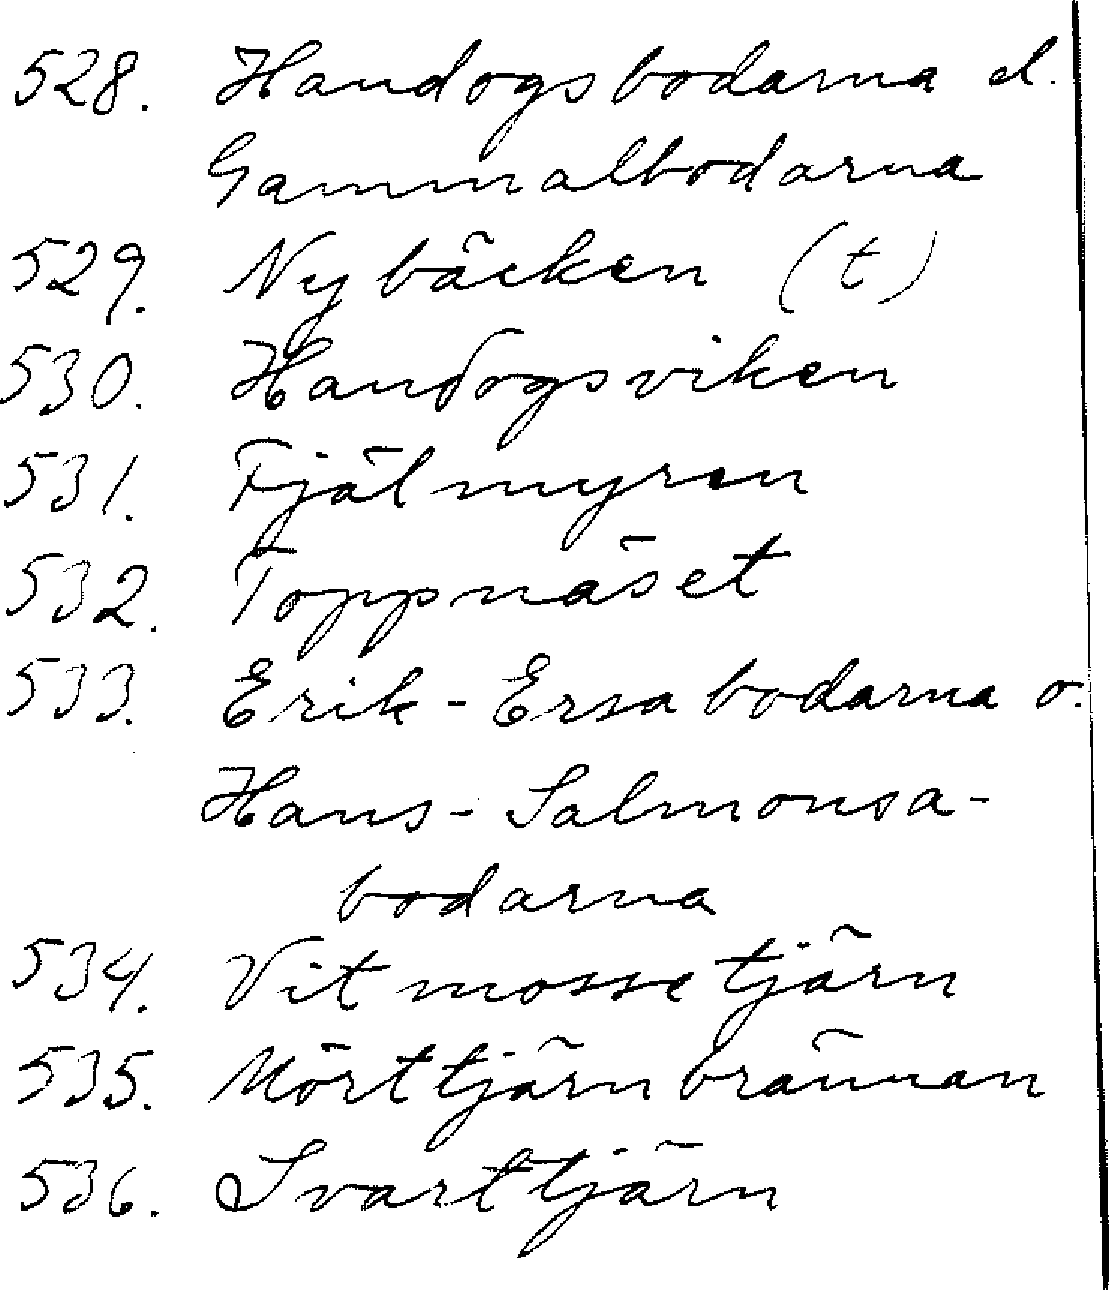 528. Handogsbodarna el.
Gammalbodarna
529. Nybäcken (t)
530. Handogsviken
531. Fjälmyren
532. Toppnäset
533. Erik-Ersabodarna o.
Hans-Salmonsa-
bodarna
534. Vitmossetjärn
535. Mörttjärnbrännan
536. Svarttjärn